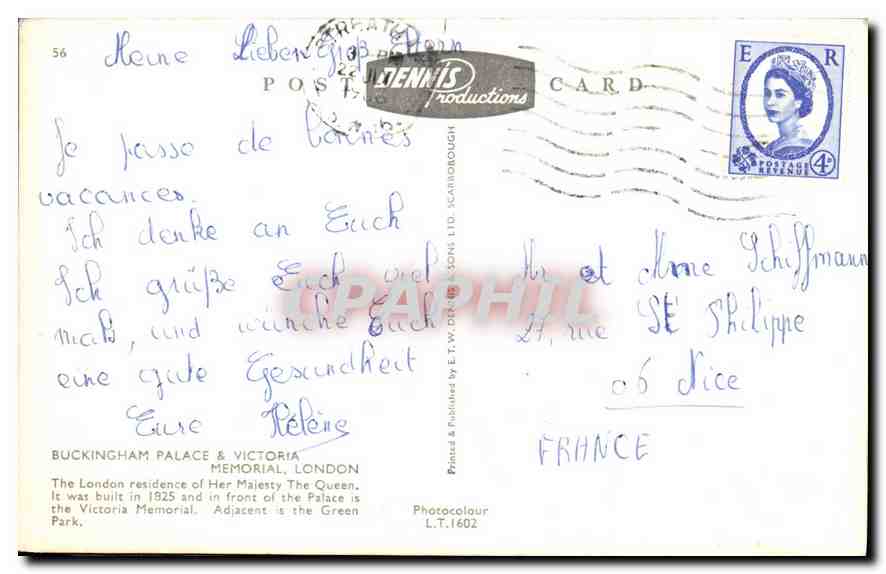 56
Meine Lieben Groß Eltern
POST CARD
DENNIS
Productions
Je passe de bonnes
vacances.
Ich denke an Euch
Ich grüße Euch viel
mals, und wünche Euch
eine gute Gesundheit
Eure Hélène
BUCKINGHAM PALACE & VICTORIA
MEMORIAL, LONDON
The London residence of Her Majesty The Queen.
It was built in 1825 and in front of the Palace is
the Victoria Memorial. Adjacent is the Green
Park.
Printed & Published by E.T.W. DENNIS & SONS LTD. SCARBOROUGH
Photocolour
L.T.1602
E R
POSTAGE
REVENUE
4D
Mr et Mme Schiffmann
27, rue St Philippe
06 Nice
FRANCE
CPAPHIL